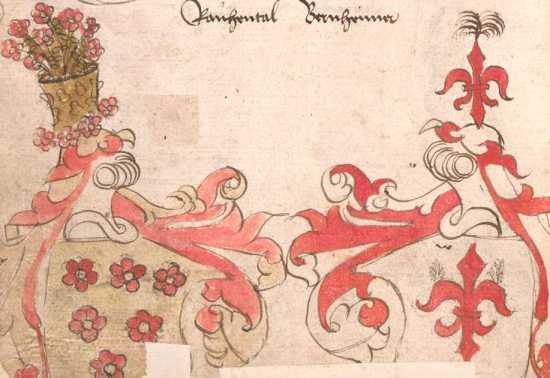 Rauhental Bernheimer